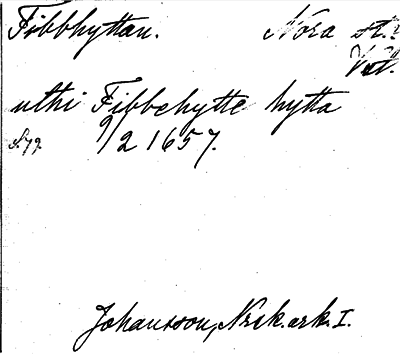 Fibbhyttan. Nora st.?
Vstl.
uthi Fibbehytte hytta
s.79. 9/2 1657.
Johansson, Nrik. ark. I.